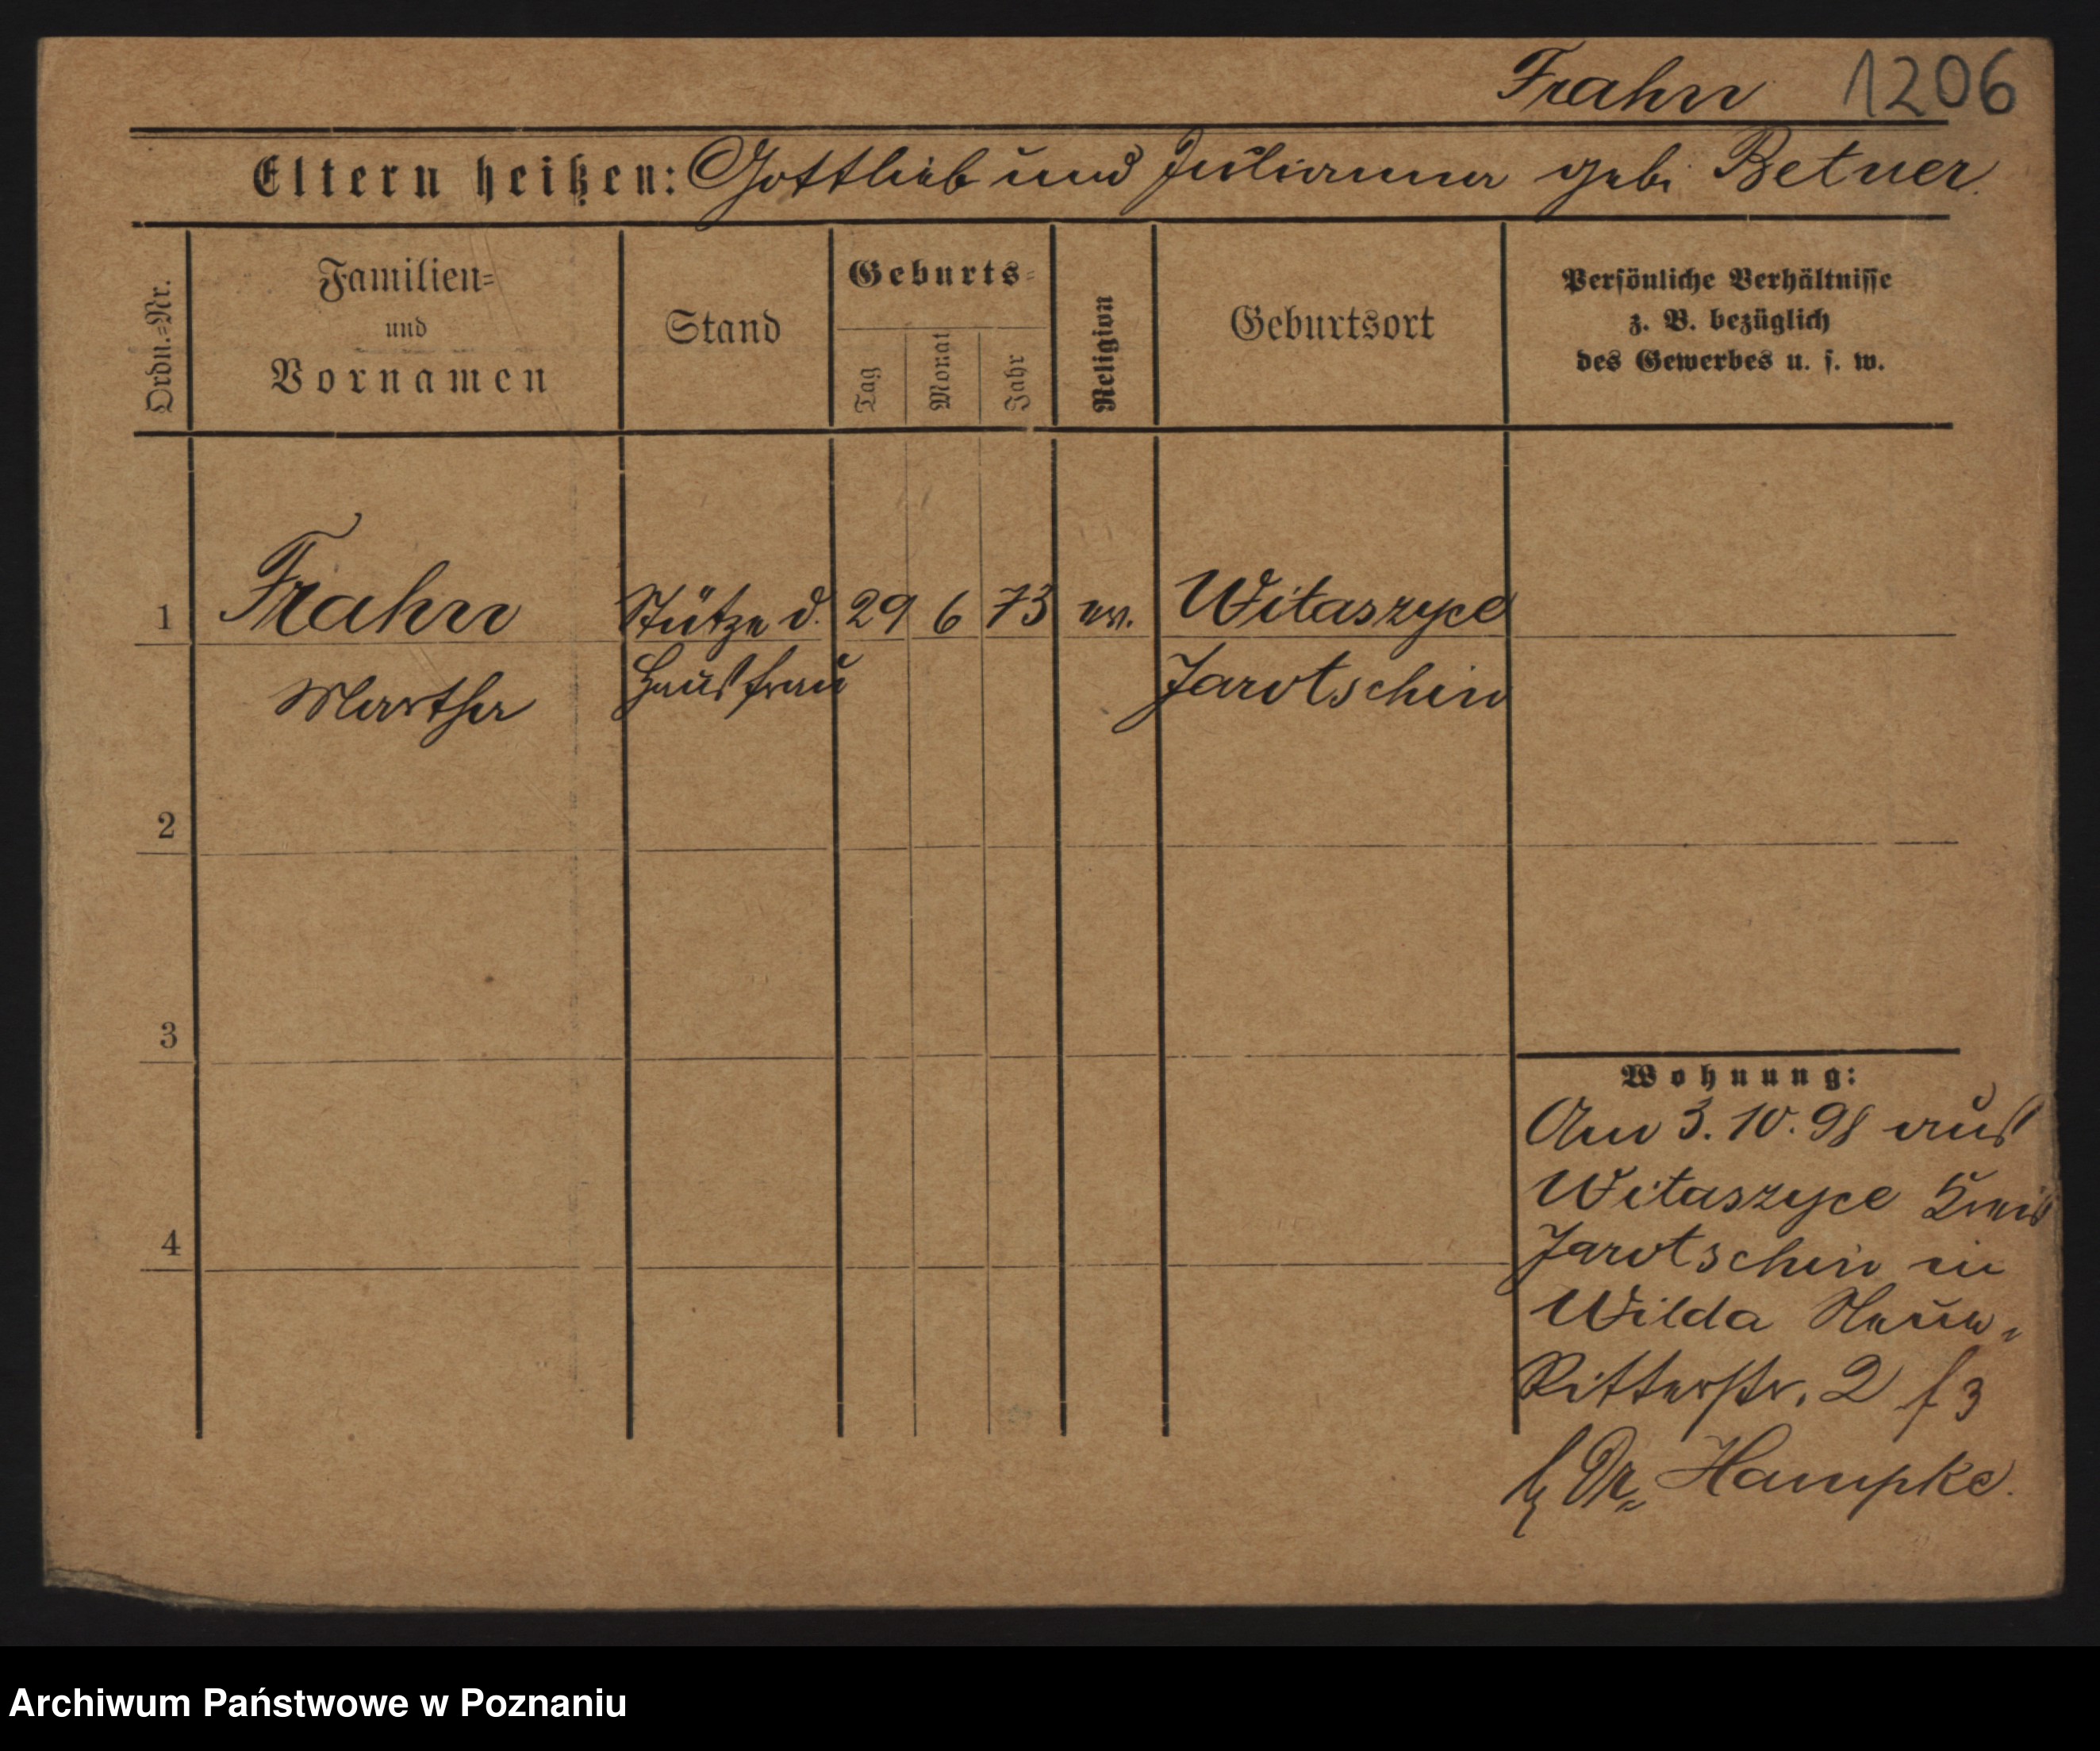 Frahn 1206
Eltern heißen: Gottlieb und Julianna geb. Betner.
Ordn.=Nr.
Familien=
und
Vornamen
Stand
Geburts=
Tag
Monat
Jahr
Religion
Geburtsort
Persönliche Verhältnisse
z. B. bezüglich
des Gewerbes u. s. w.
1 Frahn Stütze d. 29 6 73 ev. Witaszyce
Martha Hausfrau Jarotschin
2
3
4
Wohnung:
Am 3. 10. 98 aus
Witaszyce Kreis
Jarotschin in
Wilda Neue-
Ritterstr. 2 3
b. Dr. Hampke.
Archiwum Państwowe w Poznaniu